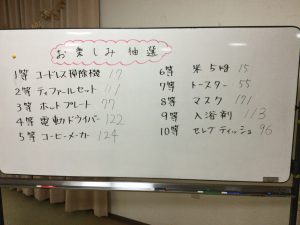 お楽しみ抽選
1等 コードレス掃除機 17
2等 ティファールセット 111
3等 ホットプレート 77
4等 電動ドライバー 122
5等 コーヒーメーカー 124
6等 米5kg 15
7等 トースター 55
8等 マスク 171
9等 入浴剤 113
10等 セレブティッシュ 96